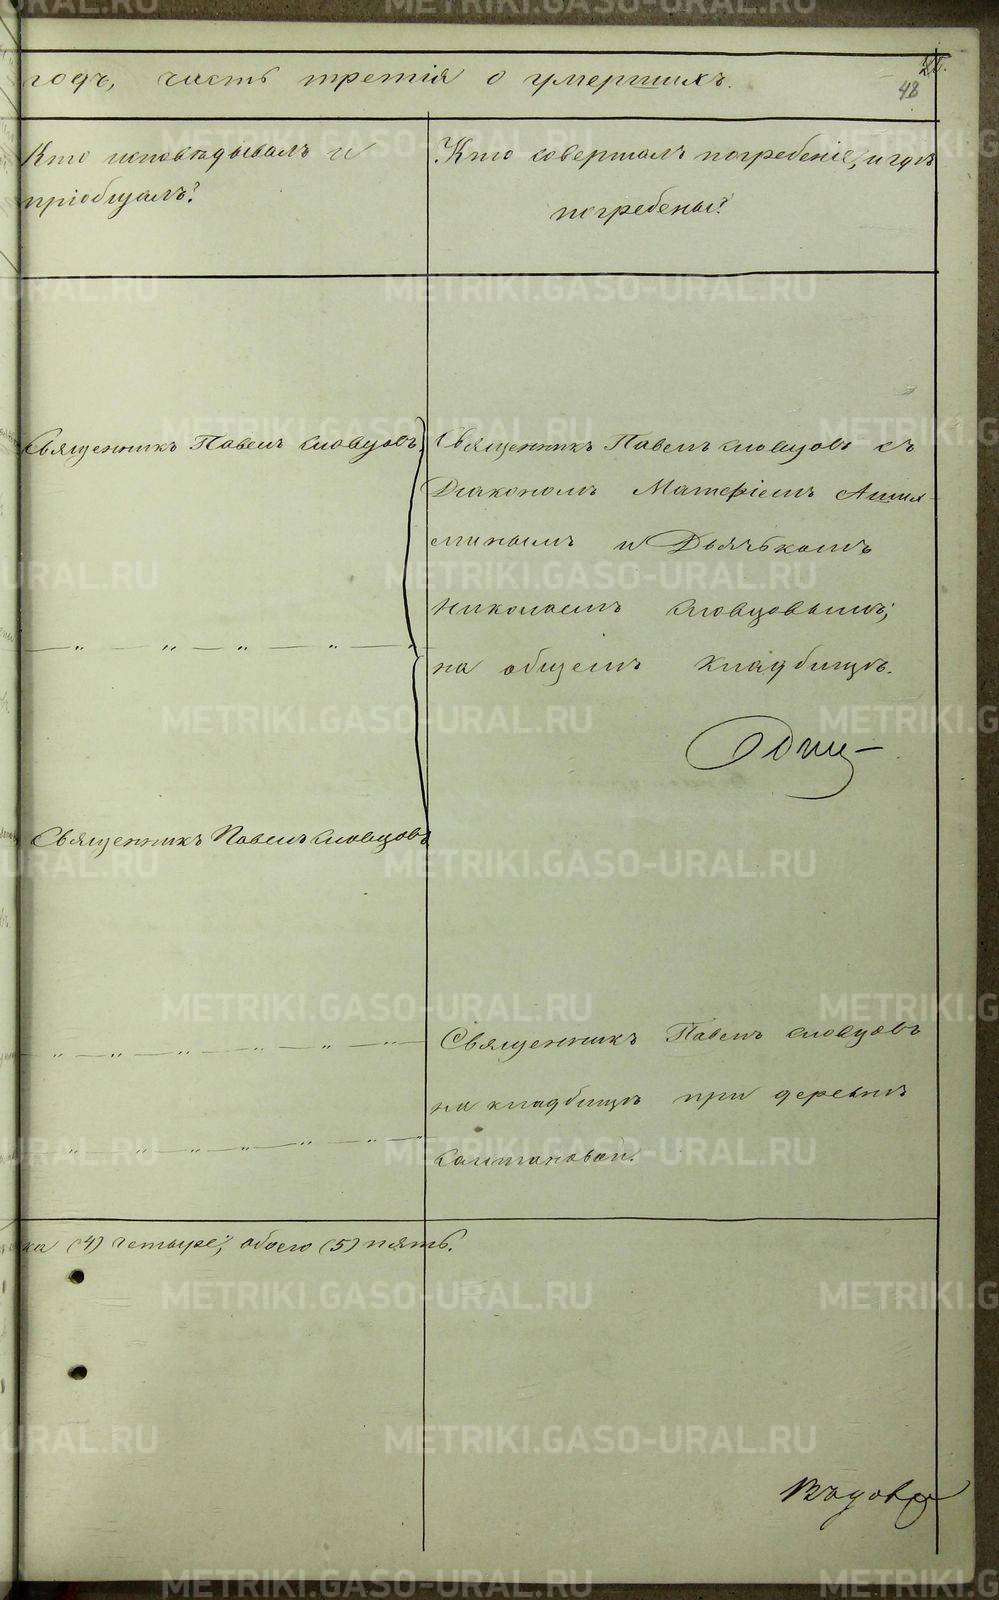 годъ, часть третія о умершихъ.
48
Кто исповѣдывалъ и
пріобщалъ?
Кто совершалъ погребеніе, и гдѣ
погребены?
Священникъ Павелъ Словцовъ
Священникъ Павелъ Словцовъ съ
Діакономъ
и Дьячькомъ
Николаемъ Словцовымъ;
на общемъ кладбищѣ.
— " — " — " — " — "
Священникъ Павелъ Словцовъ
— " — " — " — " — " — " —
Священникъ Павелъ Словцовъ
на кладбищѣ при деревнѣ
— " — " — " — " — " —
ка (4) четыре, обоего (5) пять.
METRIKI.GASO-URAL.RU